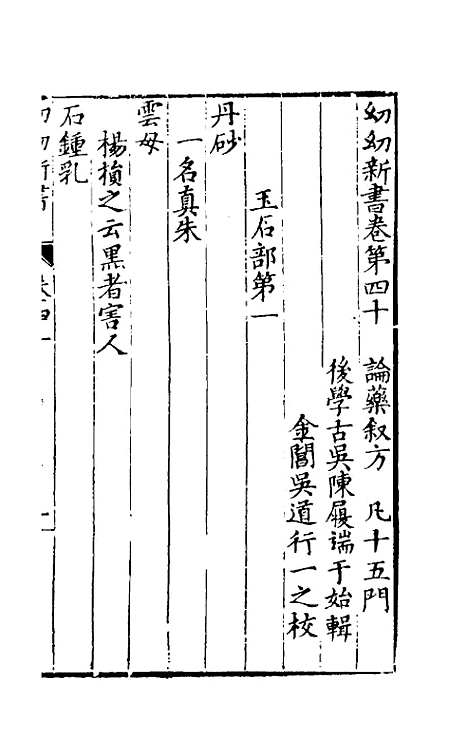 幼幼新書卷第四十　論藥叙方　凡十五門
後學古吳陳履端于始輯
金閶吳道行一之校
玉石部第一
丹砂
一名真朱
雲母
楊損之云黑者害人
石鍾乳
幼幼新書
卷四十